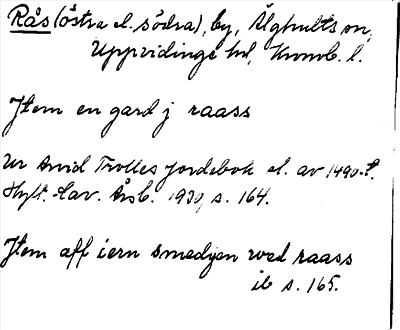 Rås (östra el. södra), by, Älghults sn,
Uppvidinge hd, Kronob. l.
Jtem en gard j raass
Ur Arvid Trolles jordebok el. av 1490-t.
Hylt. Cav. Årsb. 1930, s. 164.
Jtem aff iern smedyen wed raass
ib s. 165.